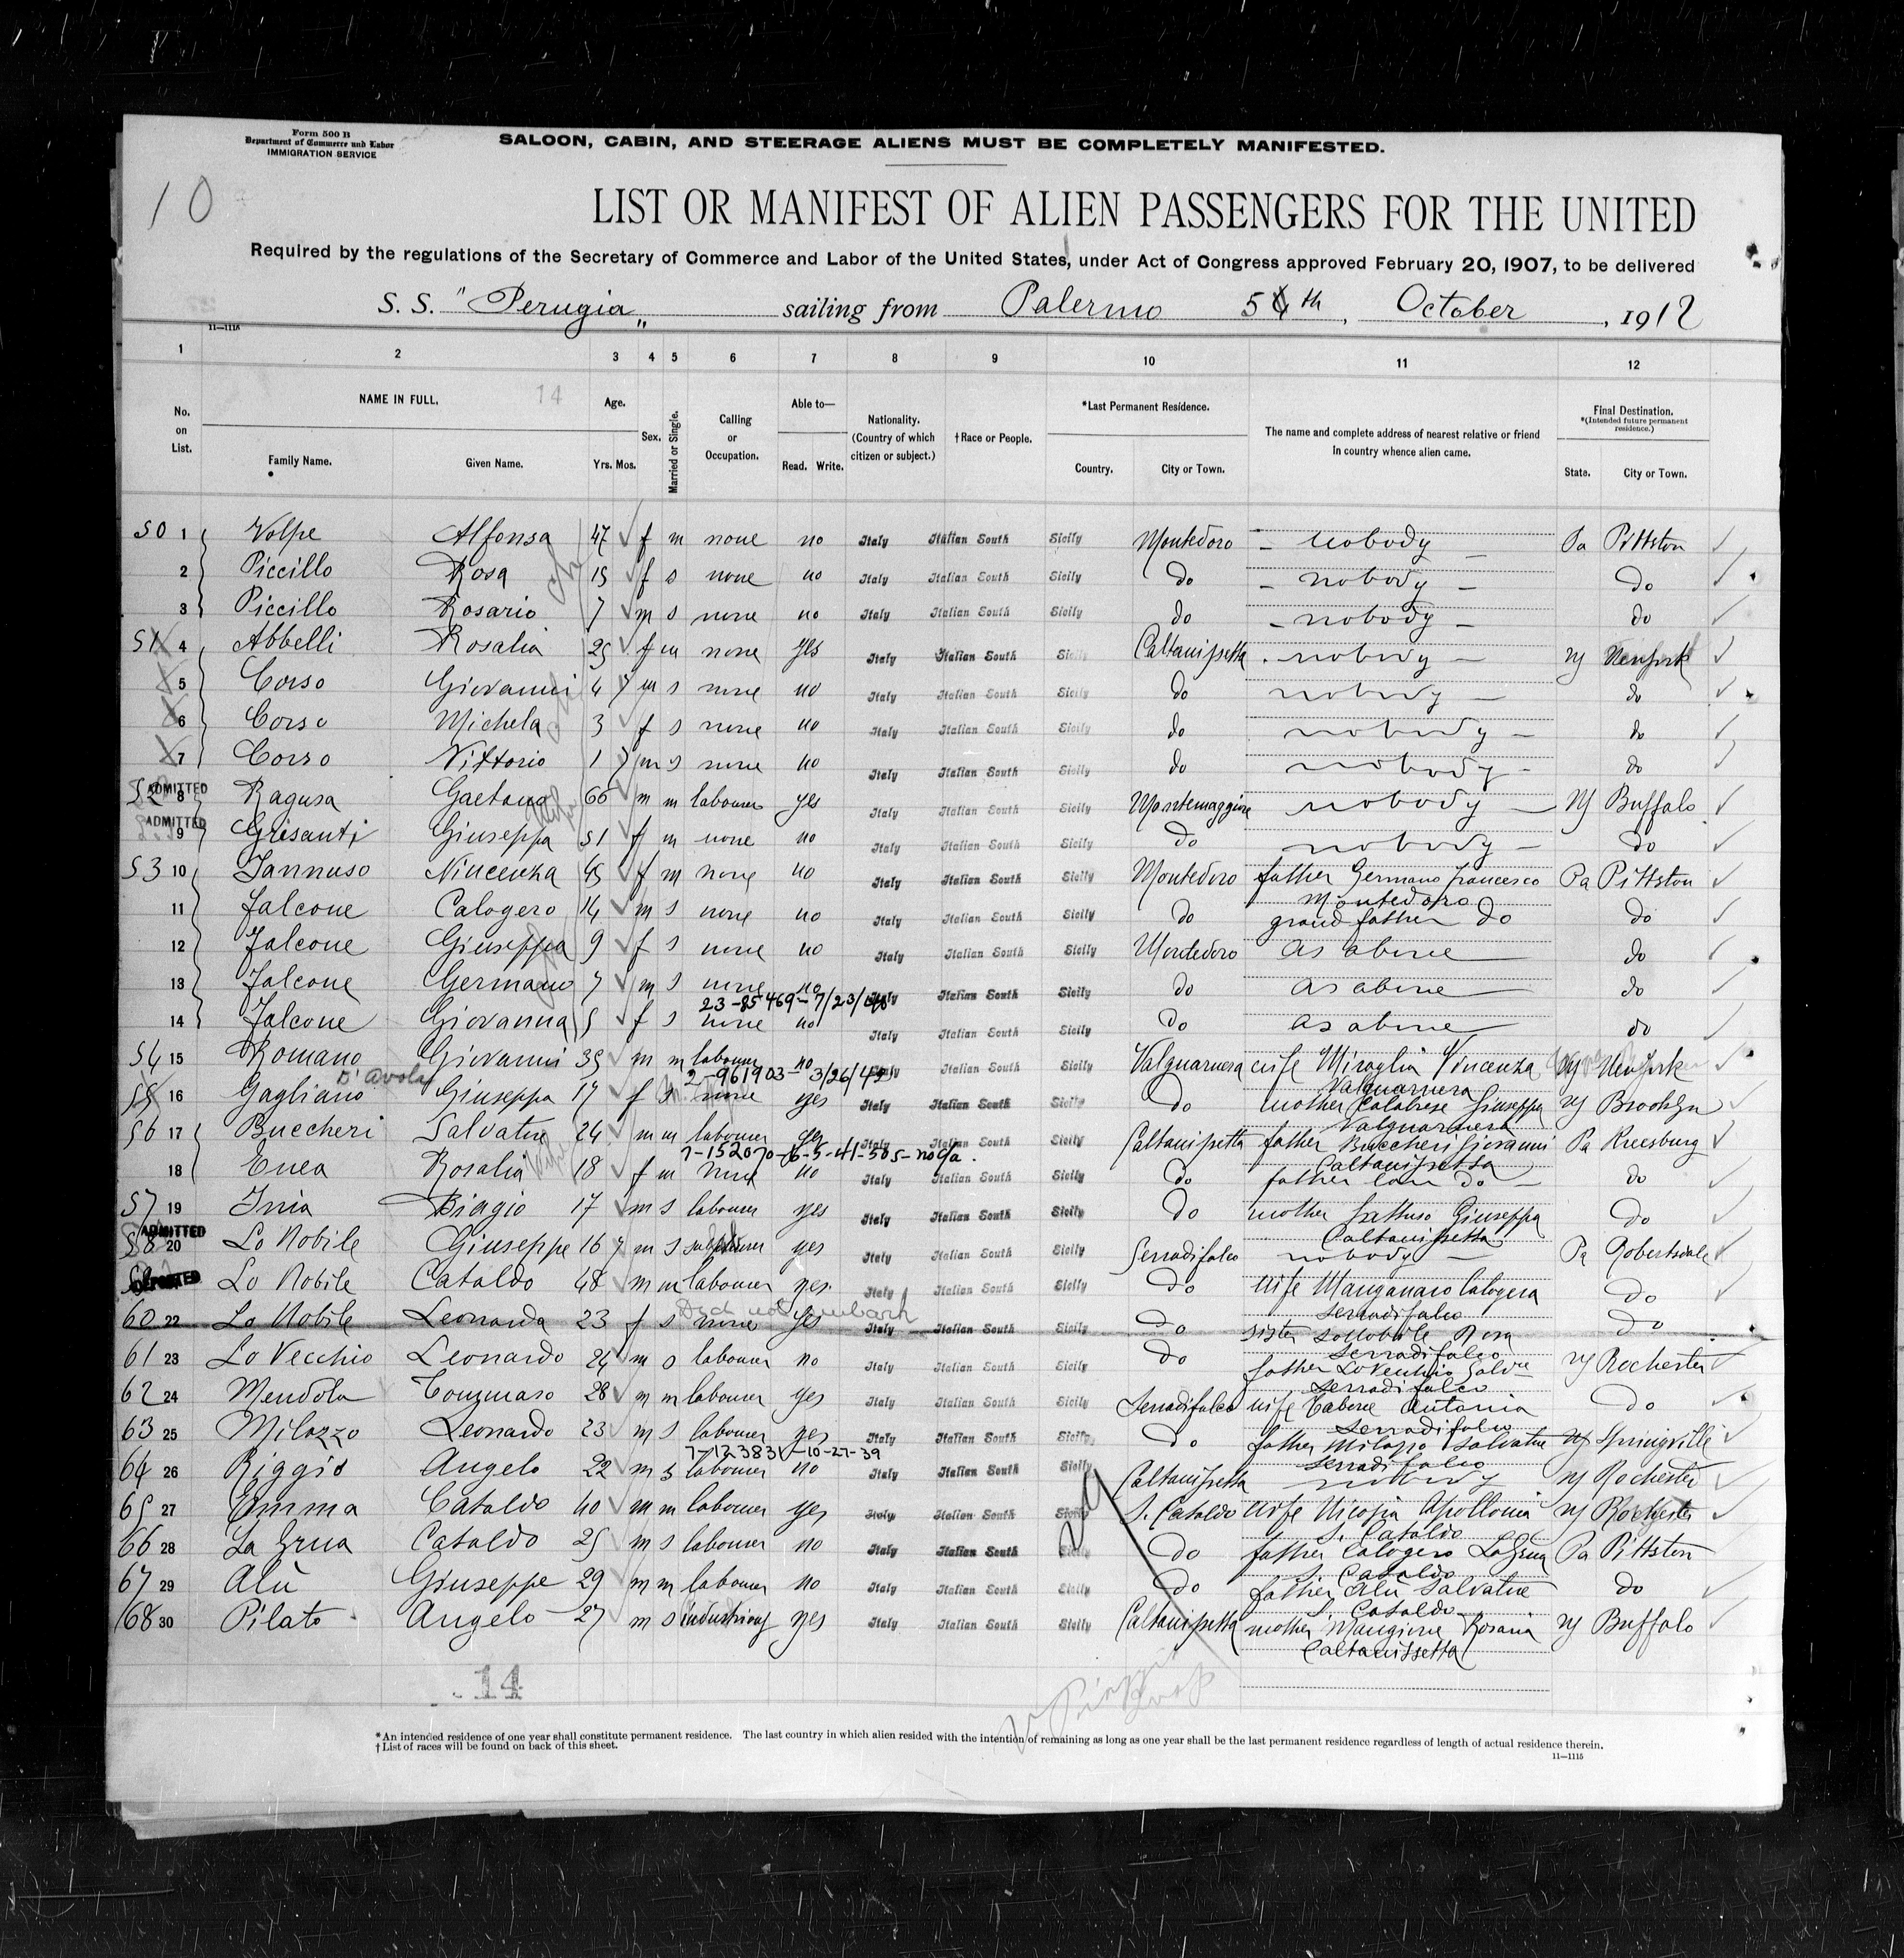 Form 500 B
Department of Commerce and Labor
IMMIGRATION SERVICE
SALOON, CABIN, AND STEERAGE ALIENS MUST BE COMPLETELY MANIFESTED.
10
LIST OR MANIFEST OF ALIEN PASSENGERS FOR THE UNITED
Required by the regulations of the Secretary of Commerce and Labor of the United States, under Act of Congress approved February 20, 1907, to be delivered
S. S. "Perugia" sailing from Palermo 5th, October, 1912
11—1115
1 2 3 4 5 6 7 8 9 10 11 12
No. on List. NAME IN FULL. 14 Family Name. Given Name. Age. Yrs. Mos. Sex. Married or Single. Calling or Occupation. Able to— Read. Write. Nationality. (Country of which citizen or subject.) †Race or People. *Last Permanent Residence. Country. City or Town. The name and complete address of nearest relative or friend in country whence alien came. Final Destination. *(Intended future permanent residence.) State. City or Town.
50 1 Volpe Alfonsa 47 f m none no Italy Italian South Sicily Montedoro - nobody - Pa Pittston
2 Piccillo Rosa 15 f s none no Italy Italian South Sicily do - nobody - do
3 Piccillo Rosario 7 m s none no Italy Italian South Sicily do - nobody - do
51 4 Abbelli Rosalia 25 f m none yes Italy Italian South Sicily Caltanissetta nobody - NY New York
5 Corso Giovanni 4 m s none no Italy Italian South Sicily do nobody - do
6 Corso Michela 3 f s none no Italy Italian South Sicily do nobody - do
7 Corso Vittorio 1 m s none no Italy Italian South Sicily do nobody - do
52 ADMITTED 8 Ragusa Gaetano 66 m m labourer yes Italy Italian South Sicily Montemaggiore nobody - NY Buffalo
ADMITTED 9 Grisanti Giuseppa 51 f m none no Italy Italian South Sicily do nobody - do
53 10 Iannuso Vincenza 45 f m none no Italy Italian South Sicily Montedoro father Germano Francesco Pa Pittston
Montedoro
11 Falcone Calogero 14 m s none no Italy Italian South Sicily do grand father do do
12 Falcone Giuseppa 9 f s none no Italy Italian South Sicily Montedoro as above do
13 Falcone Germano 7 m s none no Italy Italian South Sicily do as above do
23-85469-7/23/
14 Falcone Giovanna 5 f s none no Italy Italian South Sicily do as above do
54 15 Romano Giovanni 35 m m labourer no Italy Italian South Sicily Valguarnera wife Miraglia Vincenza NY New York
D'Avola 2-961903-3/26/43 Valguarnera
55 16 Gagliano Giuseppa 17 f none yes Italy Italian South Sicily do mother Calabrese Giuseppa NY Brooklyn
Valguarnera
56 17 Buccheri Salvatore 24 m m labourer yes Italy Italian South Sicily Caltanissetta father Buccheri Giovanni Pa
7-152070-6-5-41-505-no c/a. Caltanissetta
18 Enea Rosalia 18 f m none no Italy Italian South Sicily do father do do
57 19 Biagio 17 m s labourer yes Italy Italian South Sicily do mother Giuseppa do
Caltanissetta
58 ADMITTED 20 Lo Nobile Giuseppe 16 m s yes Italy Italian South Sicily Serradifalco nobody - Pa Robertsdale
DEPORTED Lo Nobile Cataldo 48 m m labourer yes Italy Italian South Sicily do wife Manganaro Calogera do
Did not embark Serradifalco
60 22 Lo Nobile Leonarda 23 f s none yes Italy Italian South Sicily do sister Lo Nobile Rosa do
Serradifalco
61 23 Lo Vecchio Leonardo 24 m s labourer no Italy Italian South Sicily do father Lo Vecchio Salvre NY Rochester
Serradifalco
62 24 Mendola Tommaso 28 m m labourer yes Italy Italian South Sicily Serradifalco wife Antonia do
Serradifalco
63 25 Milazzo Leonardo 23 m s labourer yes Italy Italian South Sicily do father Milazzo Salvatore NY Springville
7-123831-10-27-39 Serradifalco
64 26 Riggio Angelo 22 m s labourer no Italy Italian South Sicily Caltanissetta nobody NY Rochester
65 27 Emma Cataldo 40 m m labourer yes Italy Italian South Sicily S. Cataldo wife Nicosia Apollonia NY Rochester
S. Cataldo
66 28 La Grua Cataldo 25 m s labourer no Italy Italian South Sicily do father Calogero La Grua Pa Pittston
S. Cataldo
67 29 Alù Giuseppe 29 m m labourer no Italy Italian South Sicily do father Alù Salvatore do
S. Cataldo
68 30 Pilato Angelo 27 m s yes Italy Italian South Sicily Caltanissetta mother Mangione Rosaria NY Buffalo
Caltanissetta
14
*An intended residence of one year shall constitute permanent residence. The last country in which alien resided with the intention of remaining as long as one year shall be the last permanent residence regardless of length of actual residence therein.
†List of races will be found on back of this sheet.
11—1115